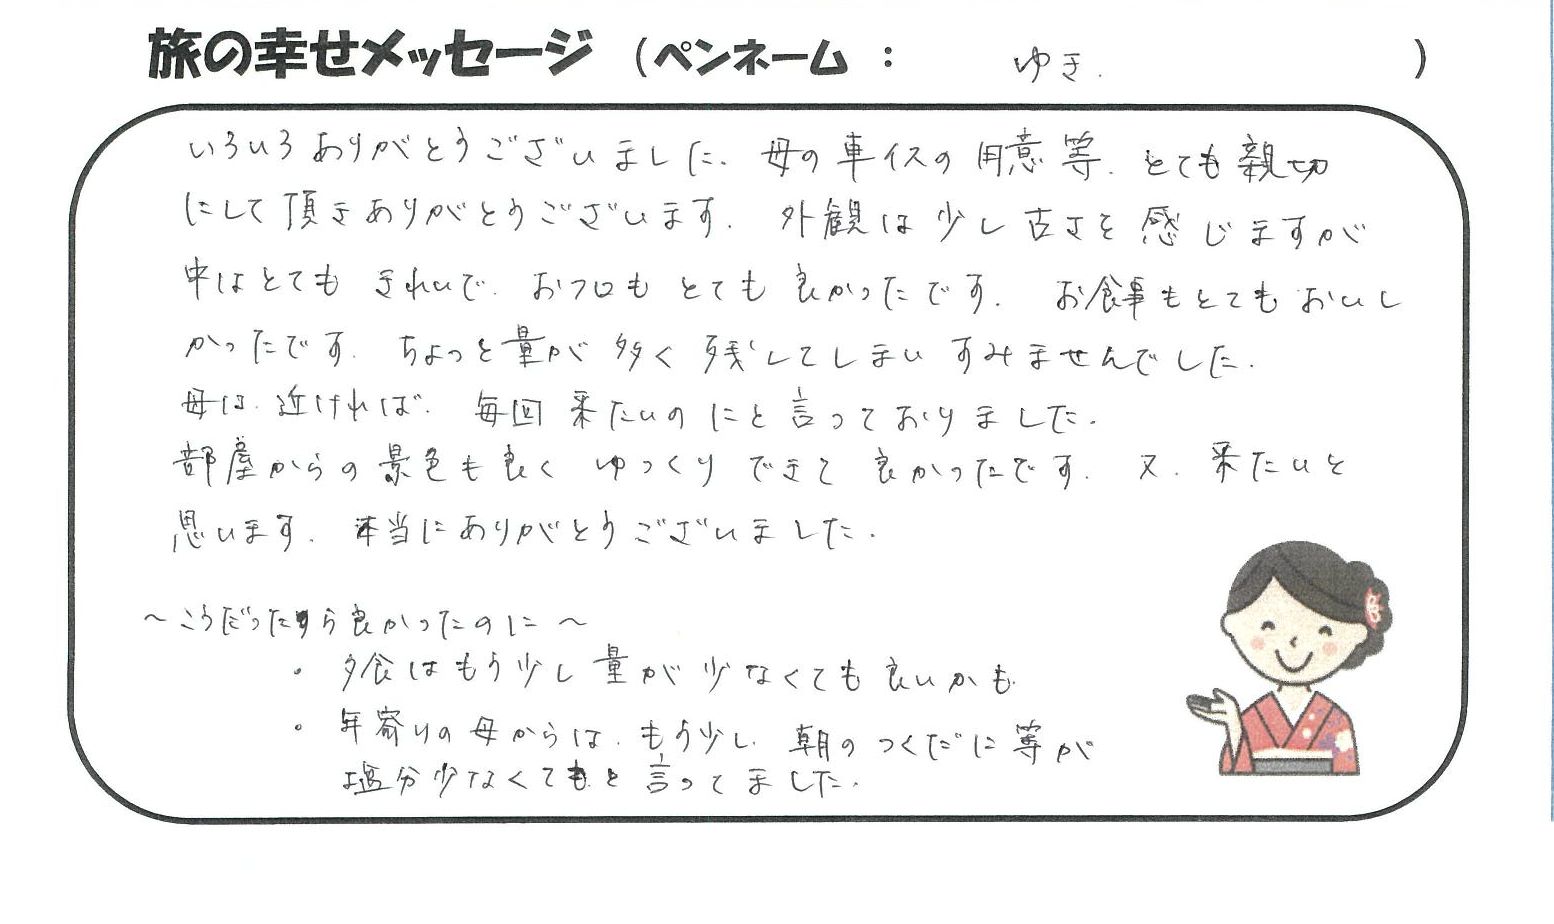 旅の幸せメッセージ (ペンネーム : ゆき. )
いろいろありがとうございました. 母の車イスの用意等. とても親切
にして頂きありがとうございます. 外観は少し古さを感じますが
中はとても きれいで. おフロも とても 良かったです. お食事もとても おいし
かったです. ちょっと量が 多く 残してしまい すみませんでした.
母は. 近ければ. 毎回 来たいのにと 言っておりました.
部屋からの景色も良く ゆっくり できて 良かったです. 又. 来たいと
思います. 本当にありがとうございました.
～こうだったら良かったのに～
・ 夕食はもう少し量が少なくても良いかも
・ 年寄りの母からは. もう少し 朝のつくだに等が
塩分少なくてもと言ってました.